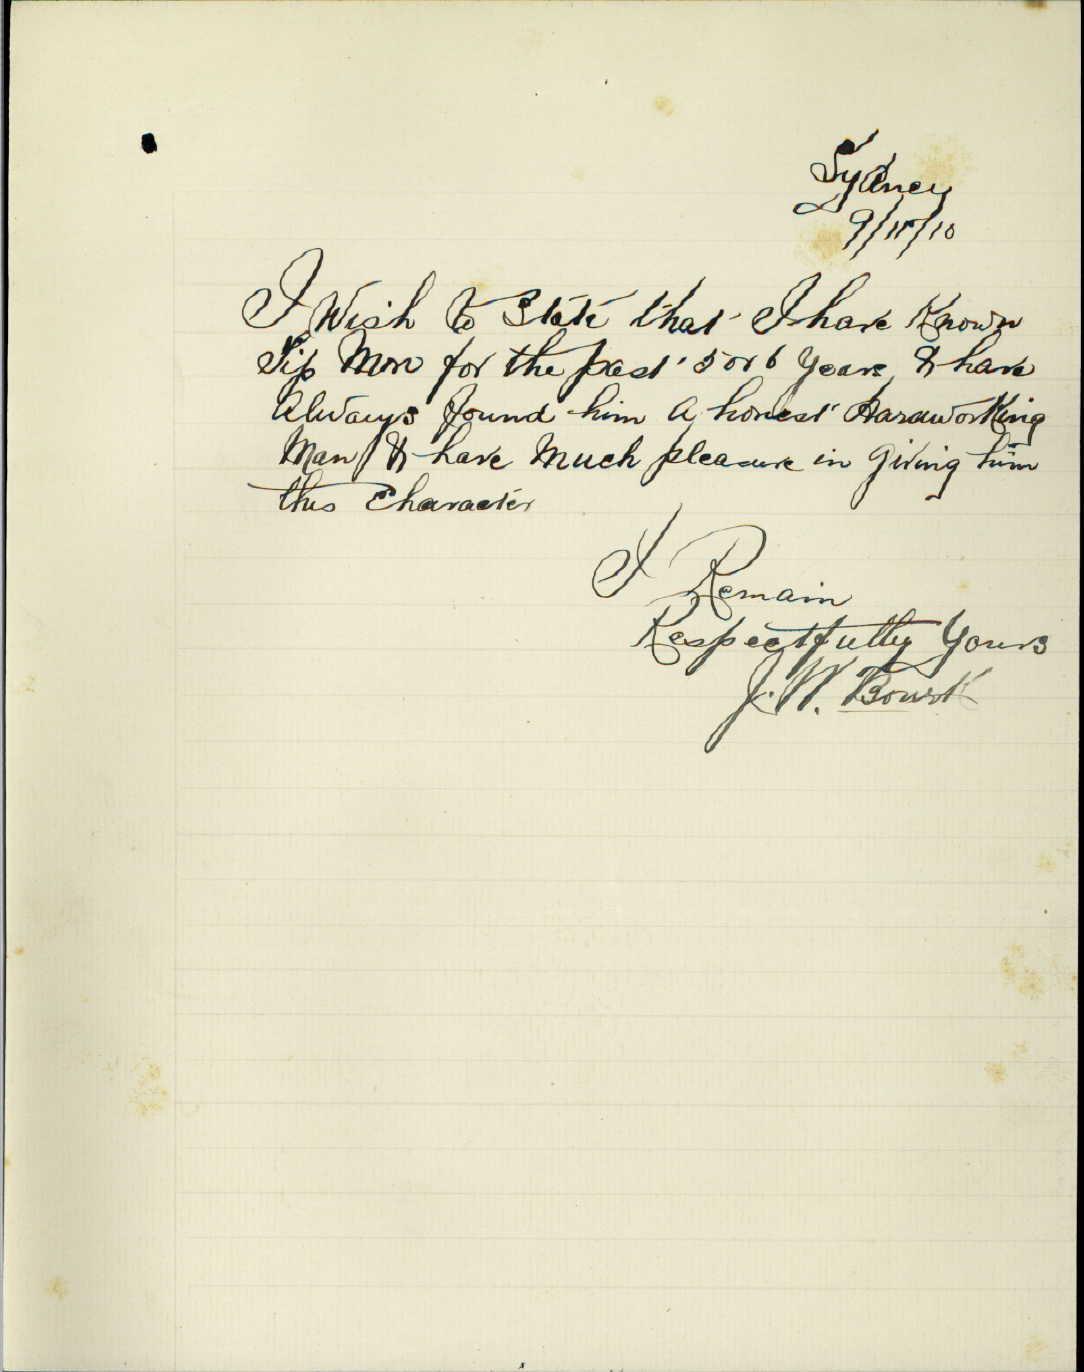 Sydney
9/11/10
I Wish to State that I have Known
Sip Mon for the past 5 or 6 Years, & have
Always found him A honest Hardworking
Man, & have Much pleasure in giving him
this Character
I Remain
Respectfully Yours
J. W.